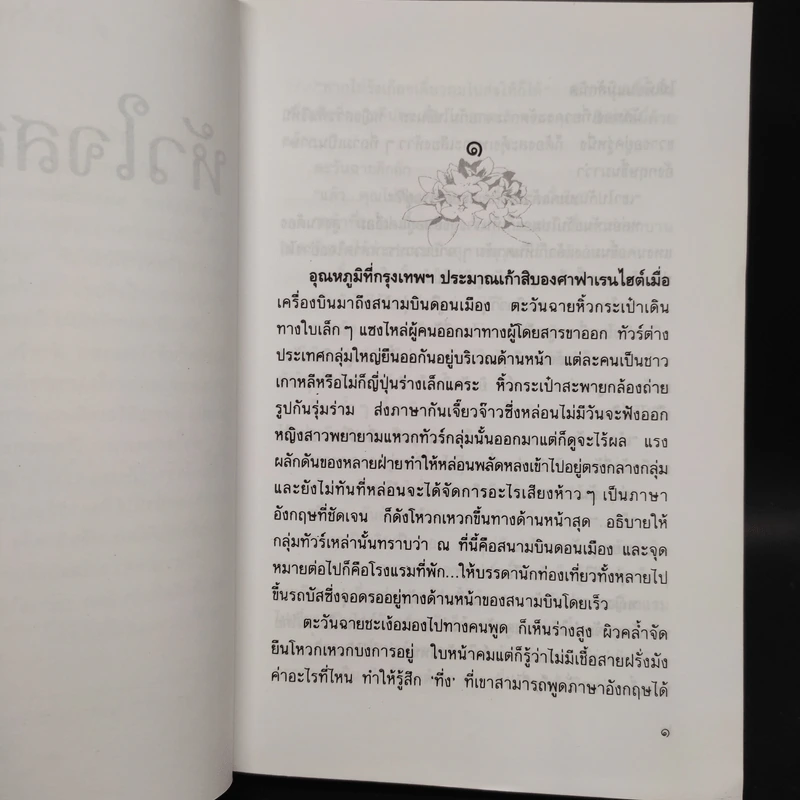 ๑
อุณหภูมิที่กรุงเทพฯ ประมาณเก้าสิบองศาฟาเรนไฮต์เมื่อ
เครื่องบินมาถึงสนามบินดอนเมือง ตะวันฉายหิ้วกระเป๋าเดิน
ทางใบเล็กๆ แซงไหล่ผู้คนออกมาทางผู้โดยสารขาออก ทัวร์ต่าง
ประเทศกลุ่มใหญ่ยืนออกันอยู่บริเวณด้านหน้า แต่ละคนเป็นชาว
เกาหลีหรือไม่ก็ญี่ปุ่นร่างเล็กแคระ หิ้วกระเป๋าสะพายกล้องถ่าย
รูปกันรุ่มร่าม ส่งภาษากันเจี๊ยวจ๊าวซึ่งหล่อนไม่มีวันจะฟังออก
หญิงสาวพยายามแหวกทัวร์กลุ่มนั้นออกมาแต่ก็ดูจะไร้ผล แรง
ผลักดันของหลายฝ่ายทำให้หล่อนพลัดหลงเข้าไปอยู่ตรงกลางกลุ่ม
และยังไม่ทันที่หล่อนจะได้จัดการอะไรเสียงห้าวๆ เป็นภาษา
อังกฤษที่ชัดเจน ก็ดังโหวกเหวกขึ้นทางด้านหน้าสุด อธิบายให้
กลุ่มทัวร์เหล่านั้นทราบว่า ณ ที่นี้คือสนามบินดอนเมือง และจุด
หมายต่อไปก็คือโรงแรมที่พัก...ให้บรรดานักท่องเที่ยวทั้งหลายไป
ขึ้นรถบัสซึ่งจอดรออยู่ทางด้านหน้าของสนามบินโดยเร็ว
ตะวันฉายชะเง้อมองไปทางคนพูด ก็เห็นร่างสูง ผิวคล้ำจัด
ยืนโหวกเหวกบงการอยู่ ใบหน้าคมแต่ก็รู้ว่าไม่มีเชื้อสายฝรั่งมัง
ค่าอะไรที่ไหน ทำให้รู้สึก 'ทึ่ง' ที่เขาสามารถพูดภาษาอังกฤษได้
๑